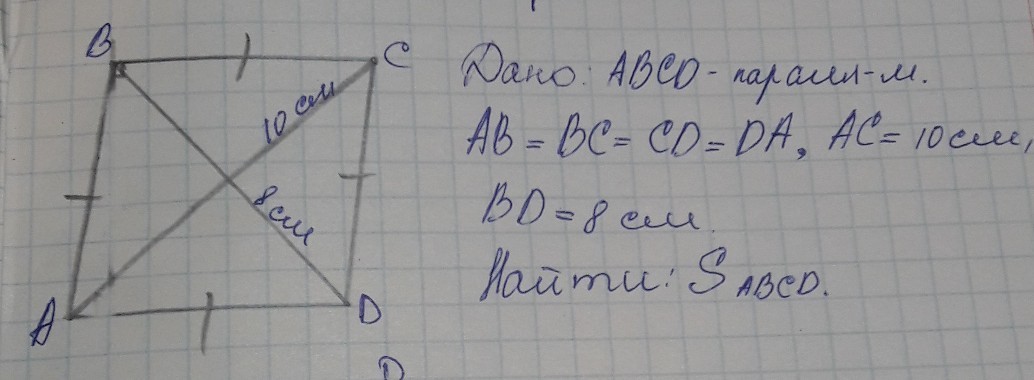 B
C
10 см
8 см
A
D
Дано: ABCD - паралл-м.
AB = BC = CD = DA, AC = 10 см,
BD = 8 см.
Найти: S ABCD.
D